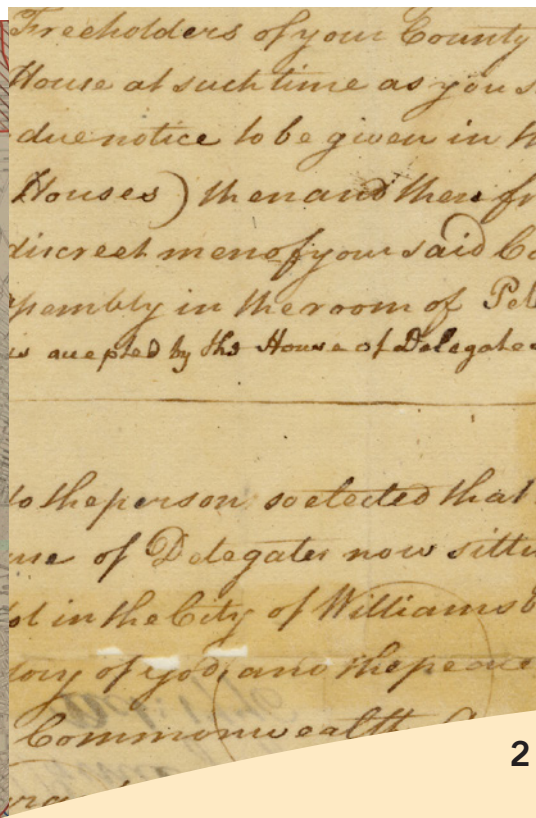 Freeholders of your County
House at such time as you s
due notice to be given in th
Houses) then and there fr
discreet men of your said Co
ssembly in the room of Pel
is accepted by the House of Delegate
to the person so elected that
use of Delegates now sittin
in the City of Williamsb
lory of god, and the peace
Commonwealth
2